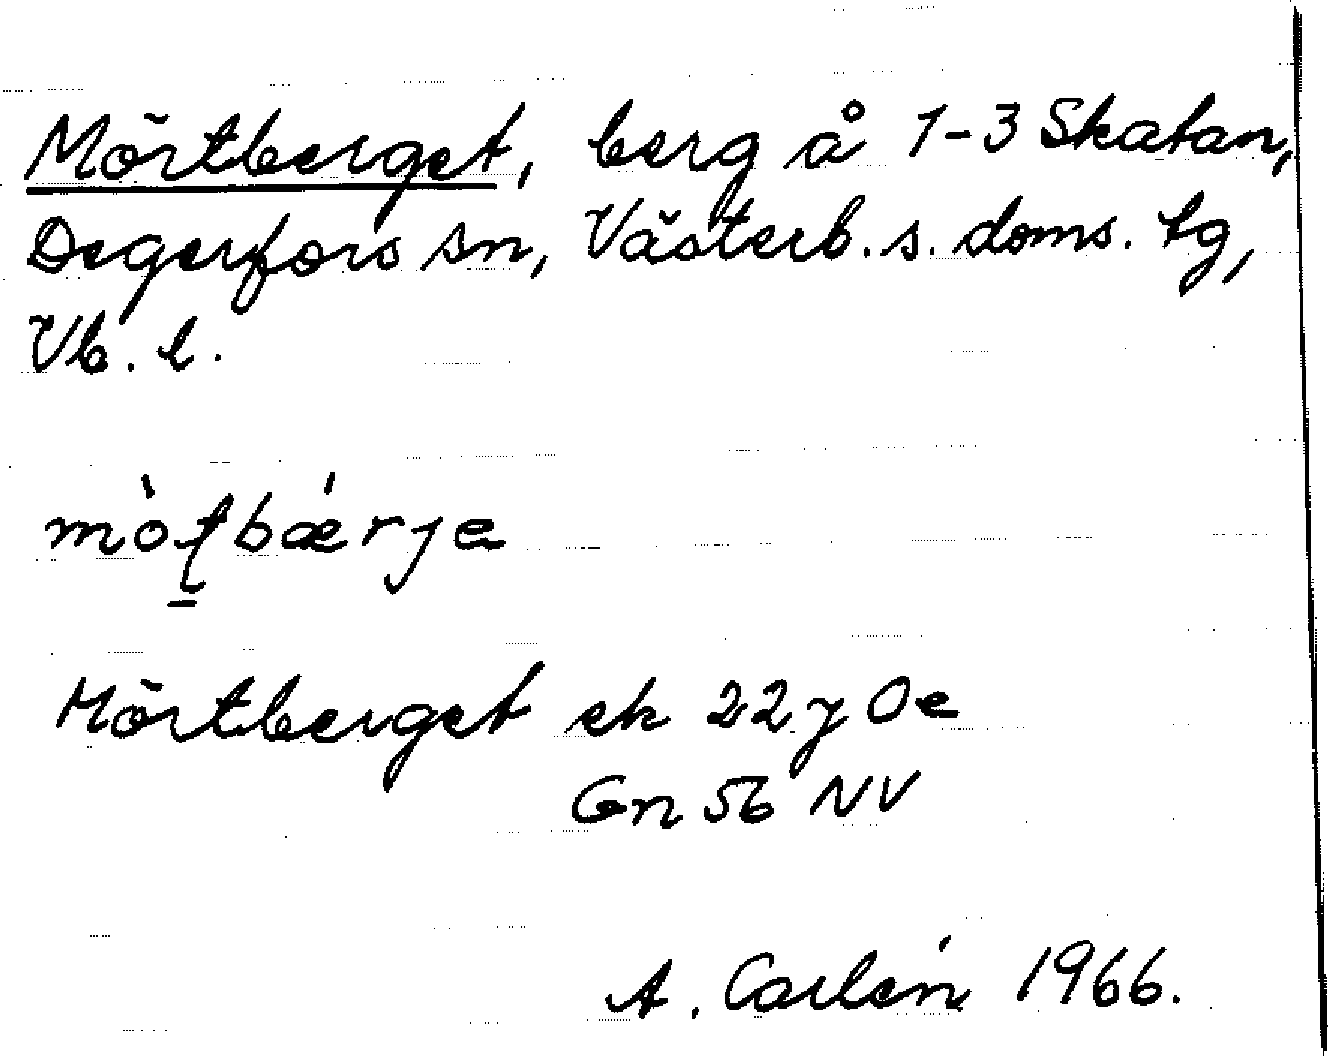 Mörtberget, berg å 1-3 Skatan,
Degerfors sn, Västerb. s. doms. tg,
Vb. l.
mòʈbǽrje
Mörtberget ek 22 y Oe
Gn 56 NV
A. Carlén 1966.